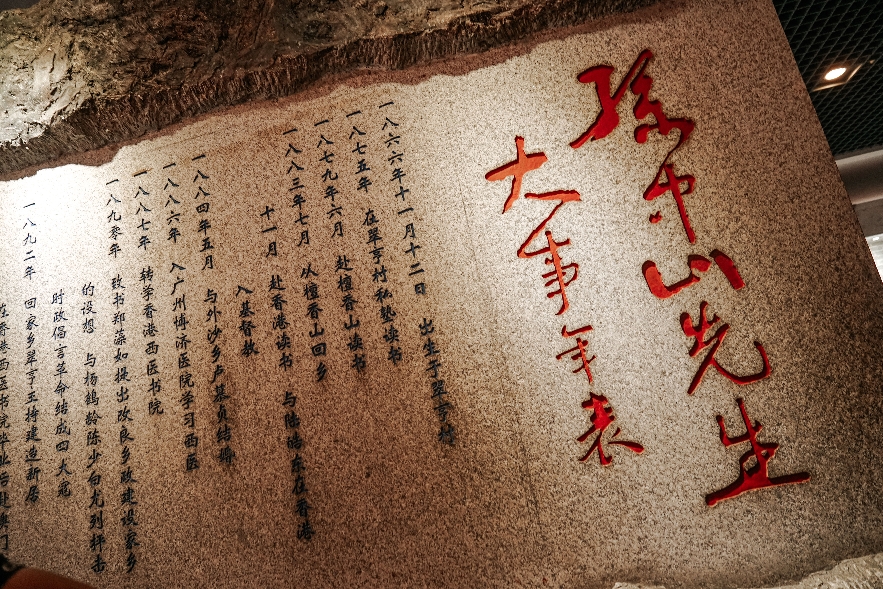 孫中山先生
大事年表
一八六六年十一月十二日 出生于翠亨村
一八七五年 在翠亨村私塾读书
一八七九年六月 赴檀香山读书
一八八三年七月 从檀香山回乡
十一月 赴香港读书 与陆皓东在香港
入基督教
一八八四年五月 与外沙乡卢慕贞结婚
一八八六年 入广州博济医院学习西医
一八八七年 转学香港西医书院
一八九零年 致书郑藻如提出改良乡政建设家乡
的设想 与杨鹤龄陈少白尢列抨击
时政倡言革命结成四大寇
一八九二年 回家乡翠亨主持建造新居
在香港西医书院毕业后赴澳门